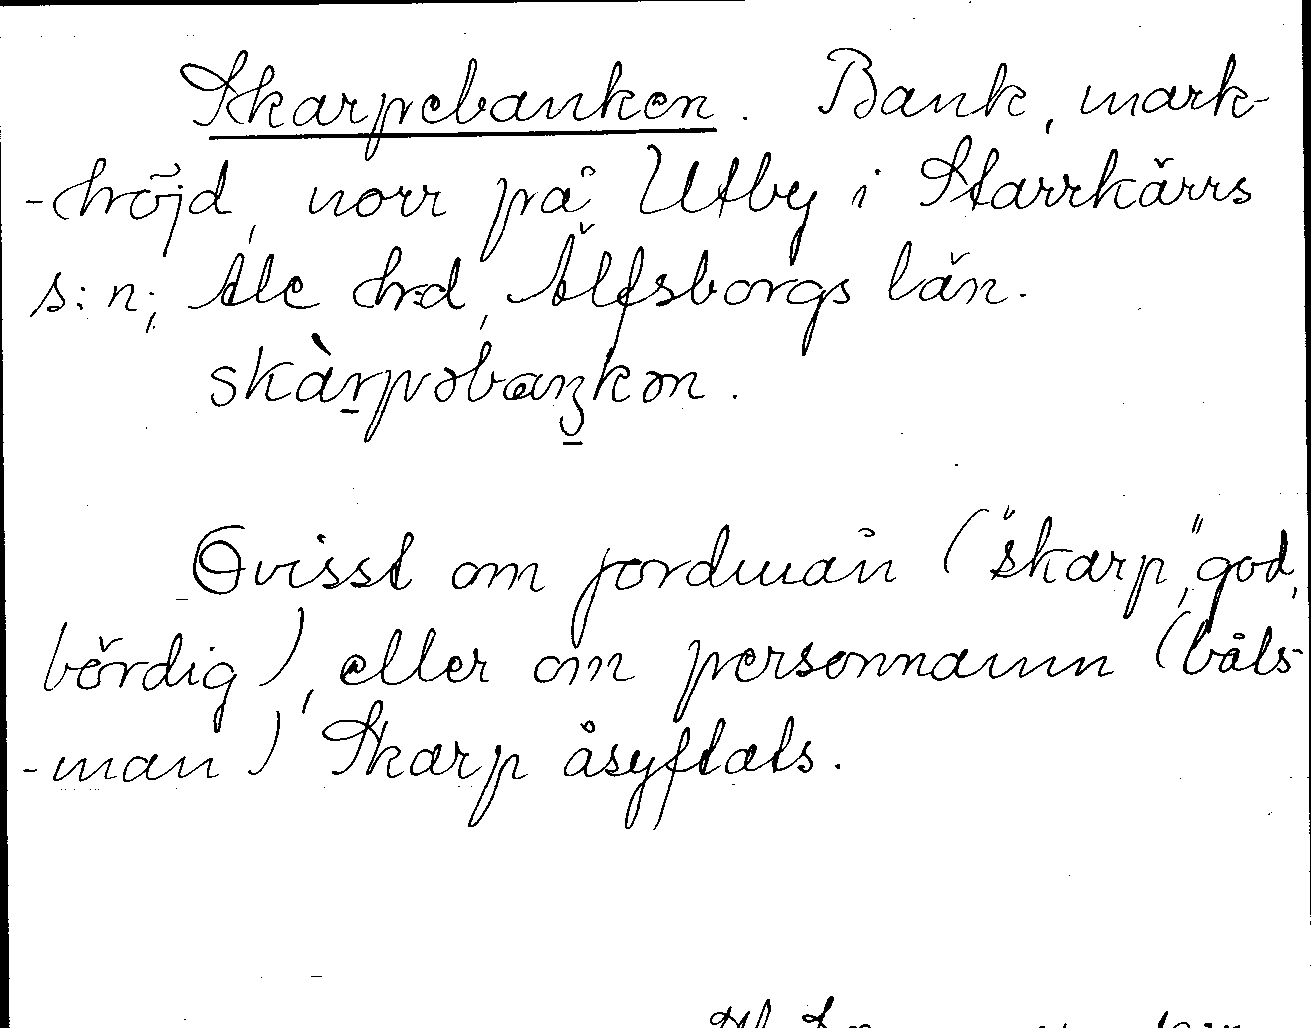 Skarpebanken. Bank, mark-
-höjd, norr på Utby i Starrkärrs
s:n, Ale h:d, Älfsborgs län.
skàrpəbaŋkən.
Ovisst om jordmån ("skarp," god,
bördig), eller om personnamn (båts-
-man) Skarp åsyftats.